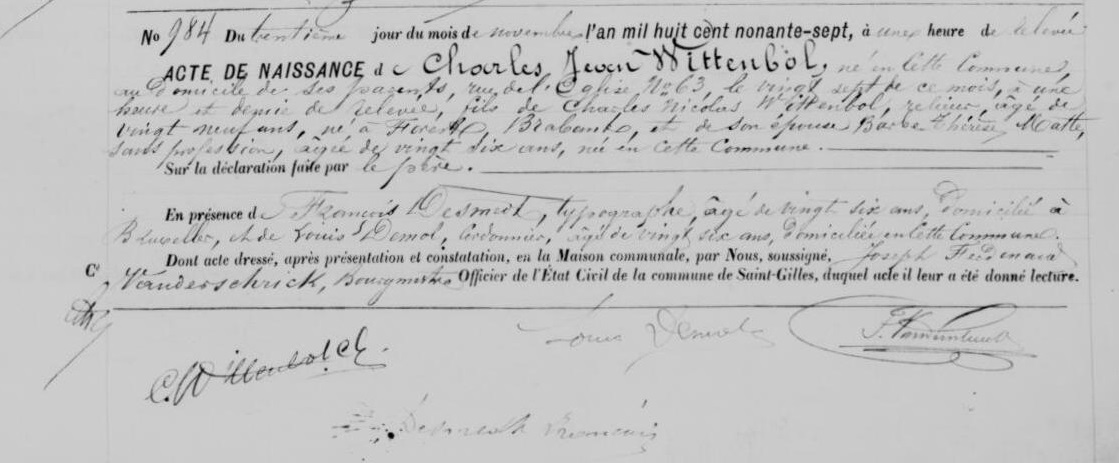 No 984 Du trentième jour du mois de novembre l'an mil huit cent nonante-sept, à une heure de relevée
ACTE DE NAISSANCE de Charles Jean Wittenbol, né en cette Commune,
au domicile de ses parents, rue de l'Eglise No 63, le vingt sept de ce mois, à une
heure et demie de relevée, fils de Charles Nicolas Wittenbol, relieur, âgé de
vingt neuf ans, né à Forest, Brabant, et de son épouse Barbe Thérèse Matte,
sans profession, âgée de vingt six ans, né en cette Commune.
Sur la déclaration faite par le père.
En présence de François Desmet, typographe, âgé de vingt six ans, domicilié à
Bruxelles, et de Louis Demol, cordonnier, âgé de vingt six ans, domiciliée en cette Commune.
Dont acte dressé, après présentation et constatation, en la Maison communale, par Nous, soussigné, Joseph Ferdinand
Cᵗ Vanderschrick, Bourgmestre Officier de l'État Civil de la commune de Saint-Gilles, duquel acte il leur a été donné lecture.
Louis Demol
C. Wittenbol Ch.
François